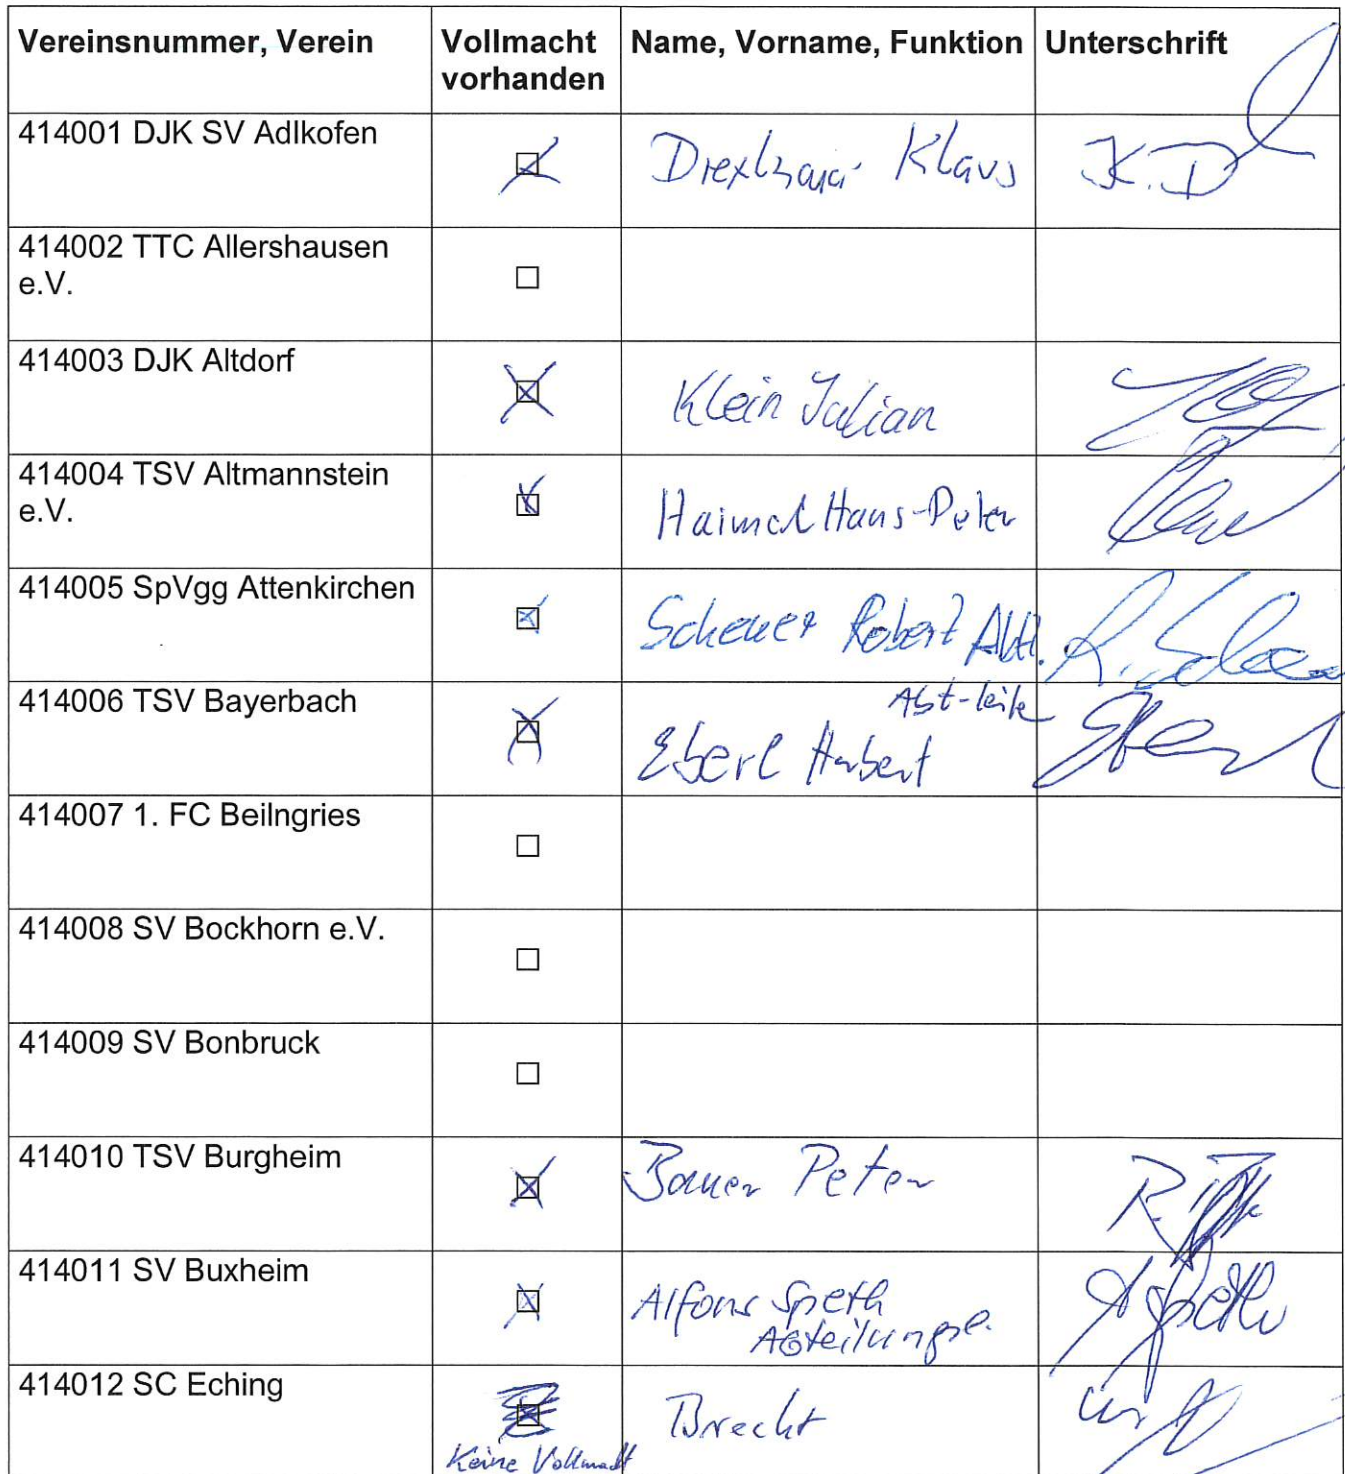 Vereinsnummer, Verein Vollmacht vorhanden Name, Vorname, Funktion Unterschrift
414001 DJK SV Adlkofen Klaus K.D
414002 TTC Allershausen
e.V.
414003 DJK Altdorf Klein Julian
414004 TSV Altmannstein Hans-Peter
e.V.
414005 SpVgg Attenkirchen Robert Abtl.
414006 TSV Bayerbach Abt-leite
Eberl Herbert
414007 1. FC Beilngries
414008 SV Bockhorn e.V.
414009 SV Bonbruck
414010 TSV Burgheim Bauer Peter
414011 SV Buxheim Alfons Speth
Abteilungsl.
414012 SC Eching Brecht
Keine Vollmacht